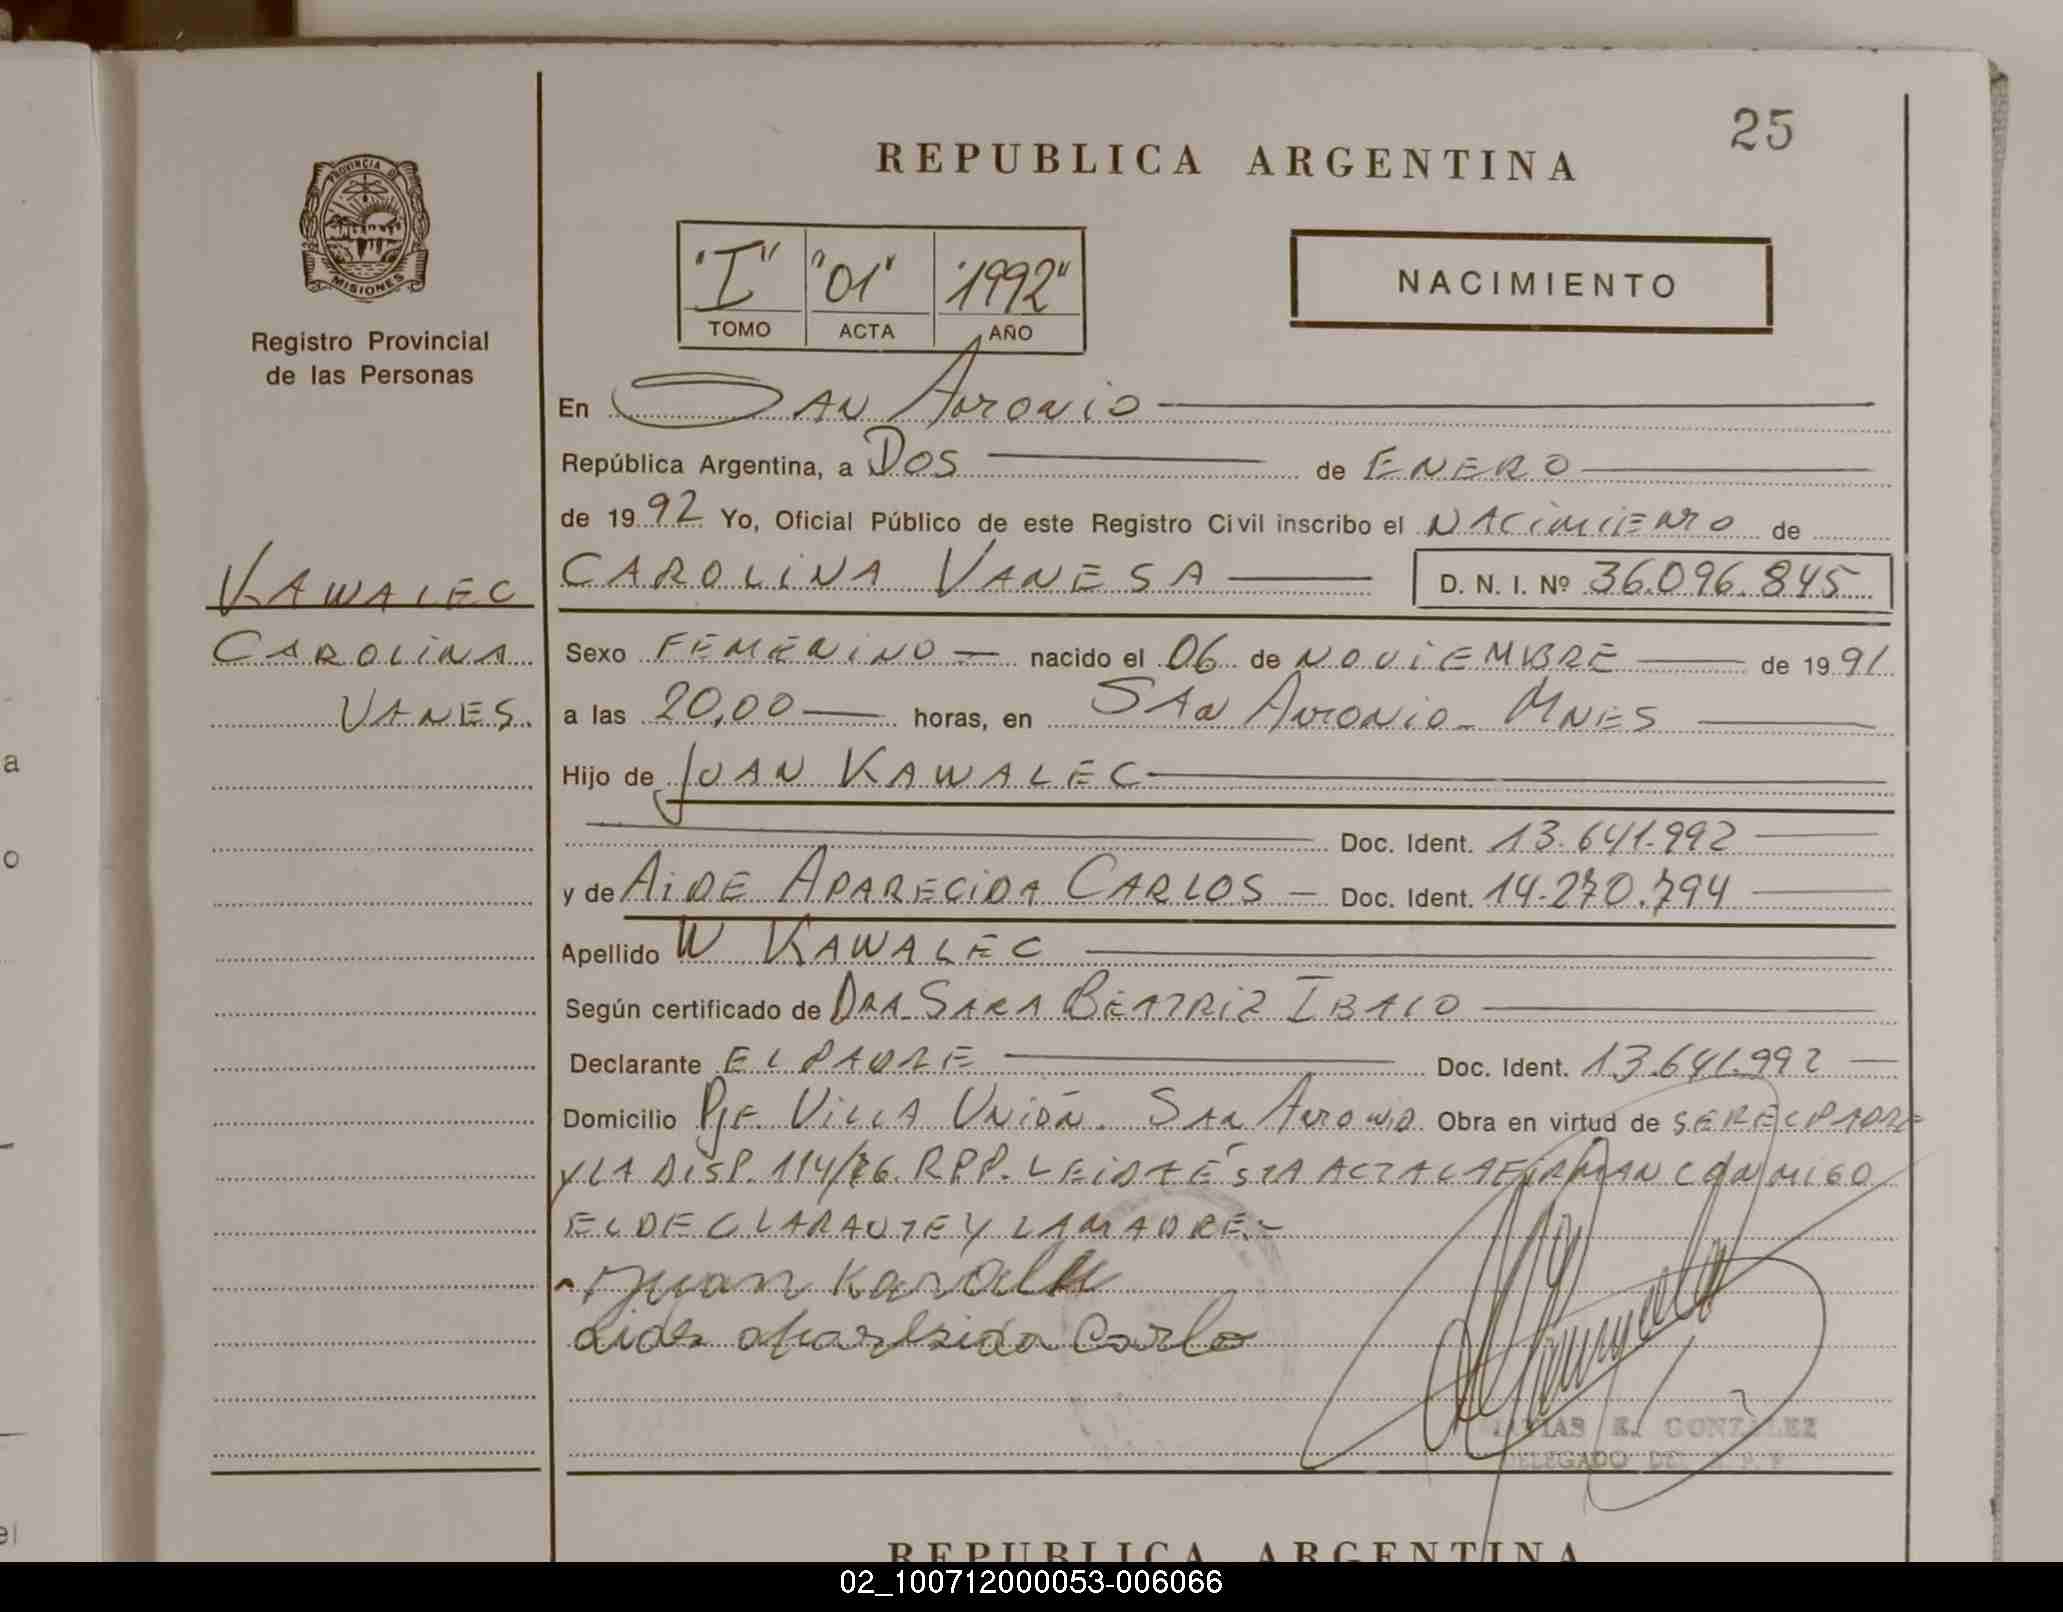 25
REPUBLICA ARGENTINA
PROVINCIA DE
MISIONES
"I" "01" "1992"
TOMO ACTA AÑO
NACIMIENTO
Registro Provincial
de las Personas
En SAN ANTONIO
República Argentina, a DOS de ENERO
de 1992 Yo, Oficial Público de este Registro Civil inscribo el NACIMIENTO de
KAWALEC
CAROLINA
VANES.
CAROLINA VANESA D. N. I. Nº 36.096.845
Sexo FEMENINO nacido el 06 de NOVIEMBRE de 1991
a las 20,00 horas, en SAN ANTONIO - MNES
Hijo de JUAN KAWALEC
Doc. Ident. 13.641.992
y de AIDE APARECIDA CARLOS Doc. Ident. 14.270.794
Apellido W KAWALEC
Según certificado de DRA SARA BEATRIZ IBALO
Declarante EL PADRE Doc. Ident. 13.641.992
Domicilio Pje. VILLA UNIÓN. SAN ANTONIO Obra en virtud de SER EL PADRE
Y LA DISP. 114/76 R.P.P. LEIDA ÉSTA ACTA LA FIRMAN CONMIGO
EL DECLARANTE Y LA MADRE.-
Juan
aide aparesida Carlo
GONZALEZ
DELEGADO DEL
REPUBLICA ARGENTINA
a
o
el
02_100712000053-006066